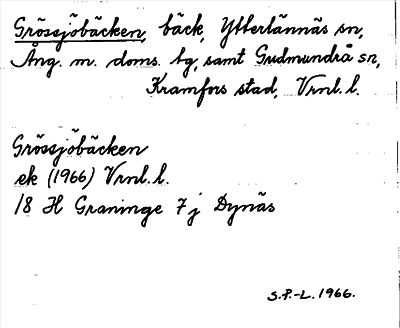 Grössjöbäcken, bäck, Ytterlännäs sn,
Ång. m. doms. tg, samt Gudmundrå sn,
Kramfors stad, Vrnl. l.
Grössjöbäcken
ek (1966) Vrnl. l.
18 H Graninge 7 j Dynäs
S.P.-L. 1966.